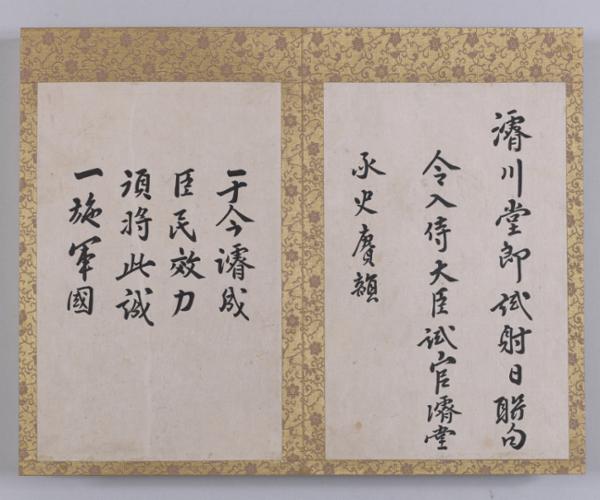 濬川堂郎試射日聯句
令入侍大臣試官濬堂
承史賡韻
于今濬成
臣民效力
須將此誠
一施軍國